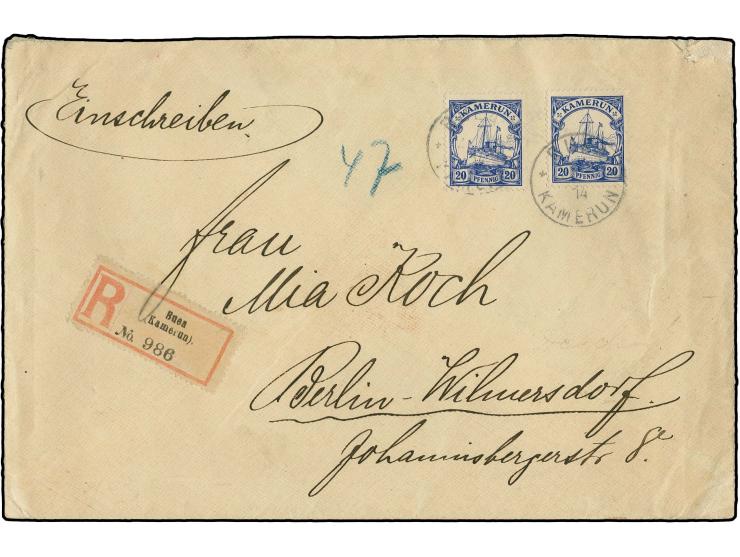 Einschreiben.
47
KAMERUN
20 PFENNIG 20
KAMERUN
20 PFENNIG 20
14
KAMERUN
Frau
Mia Koch
Berlin-Wilmersdorf.
Johannisbergerstr 8
R
Buea
(Kamerun).
No. 986